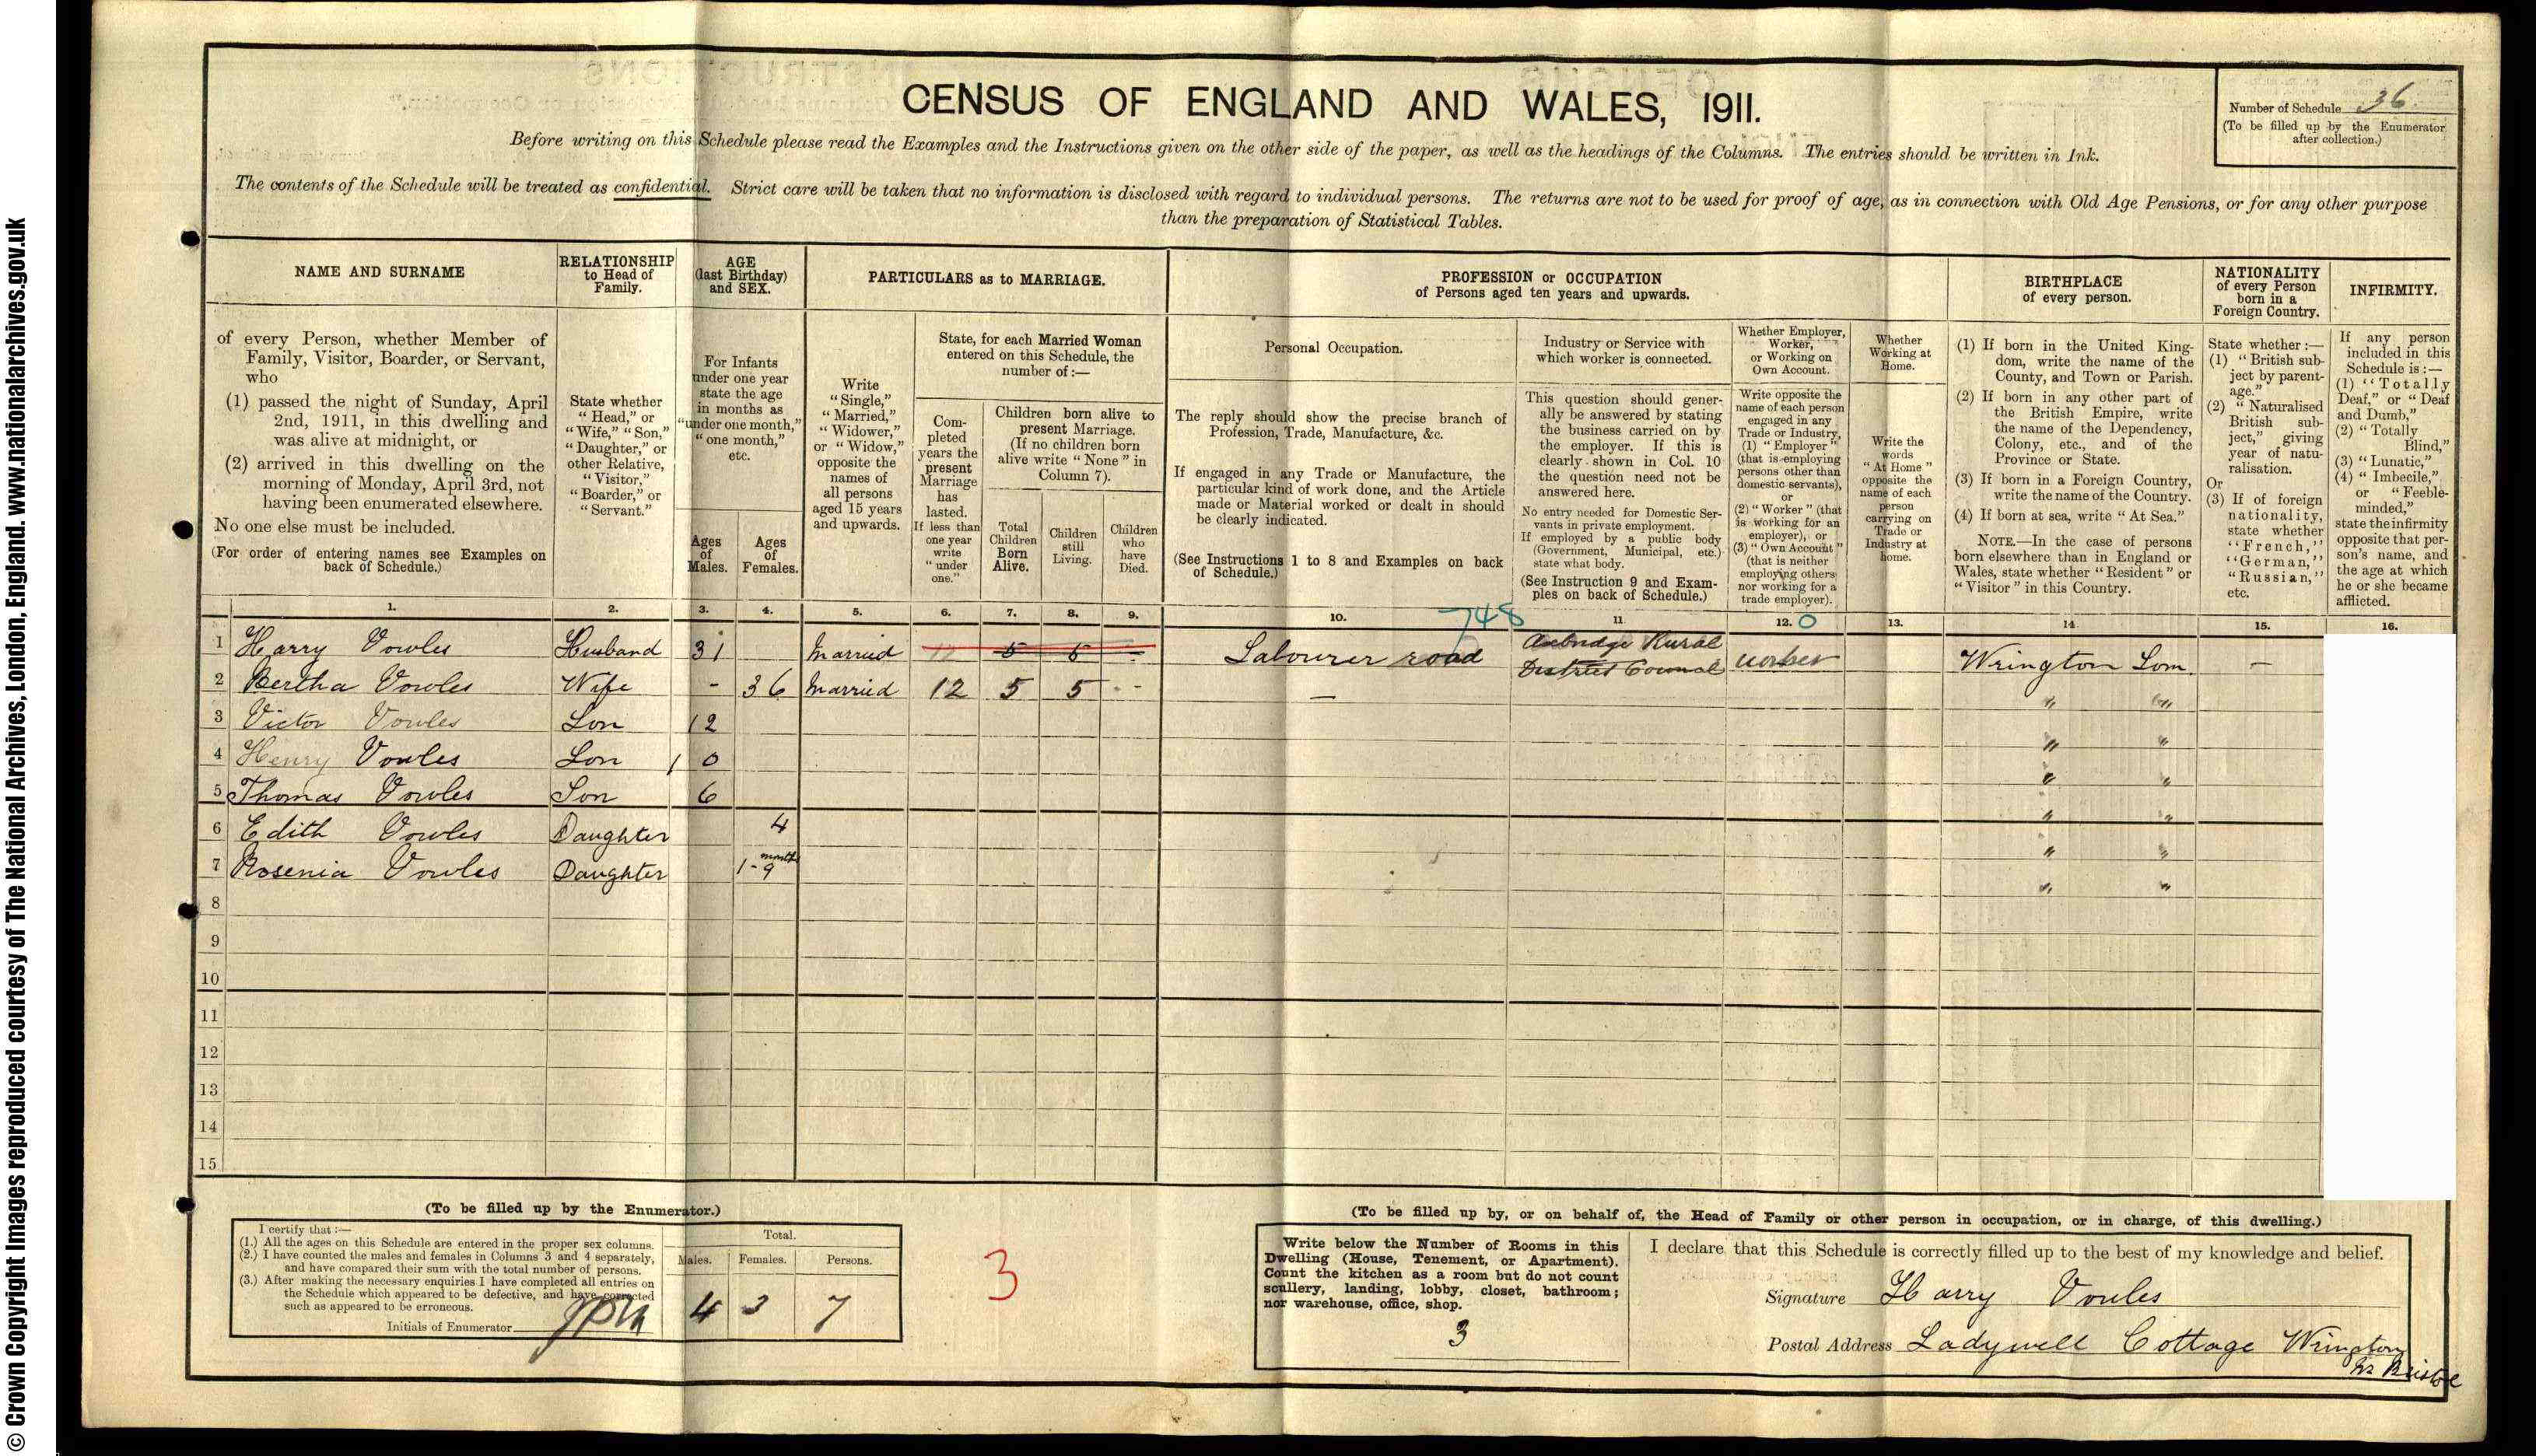 © Crown Copyright Images reproduced courtesy of The National Archives, London, England. www.nationalarchives.gov.uk
CENSUS OF ENGLAND AND WALES, 1911.
Number of Schedule 36.
(To be filled up by the Enumerator after collection.)
Before writing on this Schedule please read the Examples and the Instructions given on the other side of the paper, as well as the headings of the Columns. The entries should be written in Ink.
The contents of the Schedule will be treated as confidential. Strict care will be taken that no information is disclosed with regard to individual persons. The returns are not to be used for proof of age, as in connection with Old Age Pensions, or for any other purpose
than the preparation of Statistical Tables.
NAME AND SURNAME
of every Person, whether Member of
Family, Visitor, Boarder, or Servant,
who
(1) passed the night of Sunday, April
2nd, 1911, in this dwelling and
was alive at midnight, or
(2) arrived in this dwelling on the
morning of Monday, April 3rd, not
having been enumerated elsewhere.
No one else must be included.
(For order of entering names see Examples on
back of Schedule.)
RELATIONSHIP
to Head of
Family.
State whether
"Head," or
"Wife," "Son,"
"Daughter," or
other Relative,
"Visitor,"
"Boarder," or
"Servant."
AGE
(last Birthday)
and SEX.
For Infants
under one year
state the age
in months as
"under one month,"
"one month,"
etc.
Ages
of
Males.
Ages
of
Females.
PARTICULARS as to MARRIAGE.
Write
"Single,"
"Married,"
"Widower,"
or "Widow,"
opposite the
names of
all persons
aged 15 years
and upwards.
State, for each Married Woman
entered on this Schedule, the
number of:—
Com-
pleted
years the
present
Marriage
has
lasted.
If less than
one year
write
"under
one."
Children born alive to
present Marriage.
(If no children born
alive write "None" in
Column 7).
Total
Children
Born
Alive.
Children
still
Living.
Children
who
have
Died.
PROFESSION or OCCUPATION
of Persons aged ten years and upwards.
Personal Occupation.
The reply should show the precise branch of
Profession, Trade, Manufacture, &c.
If engaged in any Trade or Manufacture, the
particular kind of work done, and the Article
made or Material worked or dealt in should
be clearly indicated.
(See Instructions 1 to 8 and Examples on back
of Schedule.)
Industry or Service with
which worker is connected.
This question should gener-
ally be answered by stating
the business carried on by
the employer. If this is
clearly shown in Col. 10
the question need not be
answered here.
No entry needed for Domestic Ser-
vants in private employment.
If employed by a public body
(Government, Municipal, etc.)
state what body.
(See Instruction 9 and Exam-
ples on back of Schedule.)
Whether Employer,
Worker,
or Working on
Own Account.
Write opposite the
name of each person
engaged in any
Trade or Industry,
(1) "Employer"
(that is employing
persons other than
domestic servants),
or
(2) "Worker" (that
is working for an
employer), or
(3) "Own Account"
(that is neither
employing others
nor working for a
trade employer).
Whether
Working at
Home.
Write the
words
"At Home"
opposite the
name of each
person
carrying on
Trade or
Industry at
home.
BIRTHPLACE
of every person.
(1) If born in the United King-
dom, write the name of the
County, and Town or Parish.
(2) If born in any other part of
the British Empire, write
the name of the Dependency,
Colony, etc., and of the
Province or State.
(3) If born in a Foreign Country,
write the name of the Country.
(4) If born at sea, write "At Sea."
NOTE.—In the case of persons
born elsewhere than in England or
Wales, state whether "Resident" or
"Visitor" in this Country.
NATIONALITY
of every Person
born in a
Foreign Country.
State whether:—
(1) "British sub-
ject by parent-
age."
(2) "Naturalised
British sub-
ject," giving
year of natu-
ralisation.
Or
(3) If of foreign
nationality,
state whether
"French,"
"German,"
"Russian,"
etc.
INFIRMITY.
If any person
included in this
Schedule is:—
(1) "Totally
Deaf," or "Deaf
and Dumb,"
(2) "Totally
Blind,"
(3) "Lunatic,"
(4) "Imbecile,"
or "Feeble-
minded,"
state the infirmity
opposite that per-
son's name, and
the age at which
he or she became
afflicted.
1. 2. 3. 4. 5. 6. 7. 8. 9. 10. 11. 12. 13. 14. 15. 16.
748 0
1 Harry Vowles Husband 31 Married 5 5 — Labourer road Axbridge Rural District Council worker Wrington Som. —
2 Bertha Vowles Wife - 36 Married 12 5 5 - - — " "
3 Victor Vowles Son 12 " "
4 Henry Vowles Son 10 " "
5 Thomas Vowles Son 6 " "
6 Edith Vowles Daughter 4 " "
7 Rosenia Vowles Daughter 1-9 months " "
8
9
10
11
12
13
14
15
(To be filled up by the Enumerator.)
I certify that:—
(1.) All the ages on this Schedule are entered in the proper sex columns.
(2.) I have counted the males and females in Columns 3 and 4 separately,
and have compared their sum with the total number of persons.
(3.) After making the necessary enquiries I have completed all entries on
the Schedule which appeared to be defective, and have corrected
such as appeared to be erroneous.
Initials of Enumerator
Total.
Males. Females. Persons.
4 3 7
3
(To be filled up by, or on behalf of, the Head of Family or other person in occupation, or in charge, of this dwelling.)
Write below the Number of Rooms in this
Dwelling (House, Tenement, or Apartment).
Count the kitchen as a room but do not count
scullery, landing, lobby, closet, bathroom;
nor warehouse, office, shop.
3
I declare that this Schedule is correctly filled up to the best of my knowledge and belief.
Signature Harry Vowles
Postal Address Ladywell Cottage Wrington
Nr Bristol